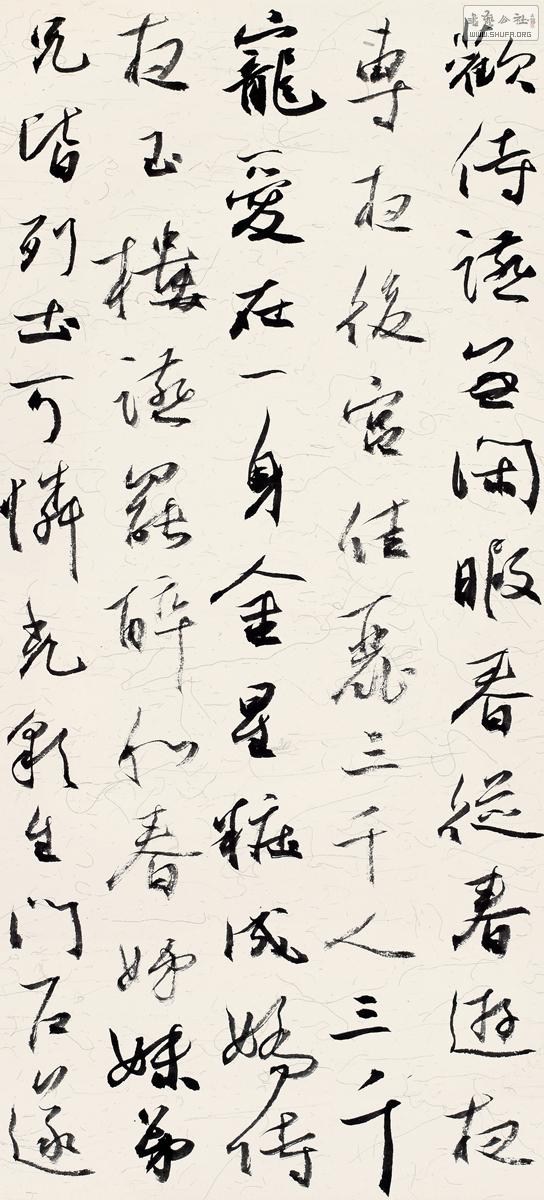 歡侍讌無閑暇春從春遊夜
專夜後宮佳麗三千人三千
寵愛在一身金屋粧成嬌侍
夜玉樓讌罷醉和春姊妹弟
兄皆列土可憐光彩生門戶遂
WWW.SHUFA.ORG